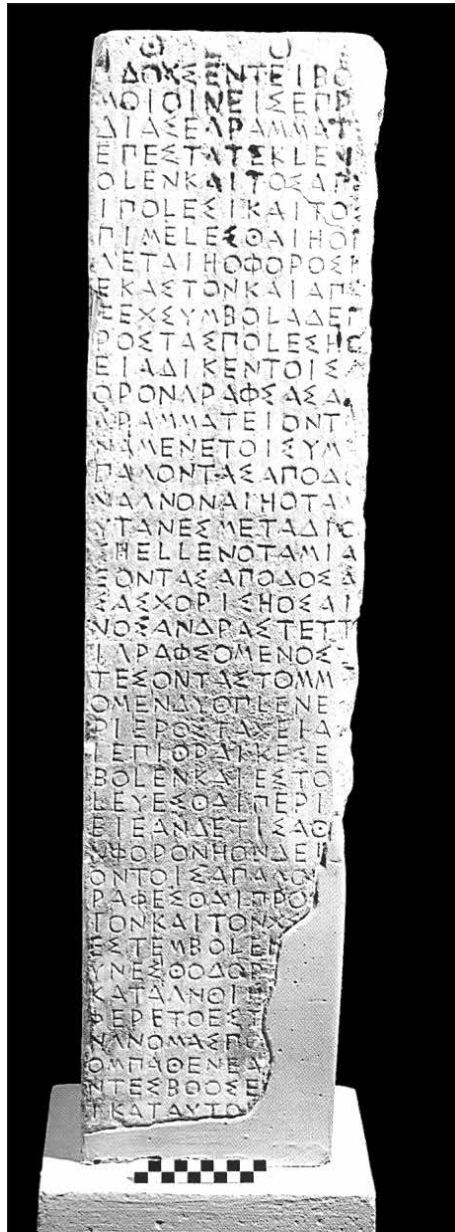 Θ Ο
ΔΟΧΣΕΝΤΕΙΒΟ
ΜΟΙΟΙΝΕΙΣΕΠΡ
ΔΙΑΣΕΓΡΑΜΜΑΤ
ΕΠΕΣΤΑΤΕΚΛΕΝ
ΟΛΕΝΚΑΙΤΟΣΑΡ
ΙΠΟΛΕΣΙΚΑΙΤΟ
ΠΙΜΕΛΕΣΘΑΙΗΟΠ
ΓΕΤΑΙΗΟΦΟΡΟΣΚ
ΕΚΑΣΤΟΝΚΑΙΑΠ
ΖΕΧΣΥΜΒΟΛΑΔΕΠ
ΡΟΣΤΑΣΠΟΛΕΣΗΟ
ΕΙΑΔΙΚΕΝΤΟΙΣΑ
ΟΡΟΝΓΡΑΦΣΑΣΑΔ
ΓΡΑΜΜΑΤΕΙΟΝΤ
ΝΑΜΕΝΕΤΟΙΣΥΜ
ΠΑΓΟΝΤΑΣΑΠΟΔΟ
ΝΑΓΝΟΝΑΙΗΟΤΑΜ
ΥΤΑΝΕΣΜΕΤΑΔΙΟ
ΣΗΕΛΛΕΝΟΤΑΜΙΑ
ΕΟΝΤΑΣΑΠΟΔΟΣΑ
ΣΑΣΧΟΡΙΣΗΟΣΑΙ
ΝΟΣΑΝΔΡΑΣΤΕΤΤ
ΙΓΡΑΦΣΟΜΕΝΟΣΤ
ΤΕΣΟΝΤΑΣΤΟΜΜ
ΟΜΕΝΔΥΟΠΛΕΝΕ
ΡΙΕΡΟΣΤΑΧΕΙΑ
ΛΕΠΙΘΡΑΙΚΕΣΕ
ΒΟΛΕΝΚΑΙΕΣΤΟ
ΛΕΥΕΣΘΑΙΠΕΡΙ
ΕΙΕΑΝΔΕΤΙΣΑΘ
ΜΦΟΡΟΝΗΟΝΔΕΙ
ΟΝΤΟΙΣΑΠΑΓΟΝ
ΡΑΦΕΣΘΑΙΠΡΟ
ΤΟΝΚΑΙΤΟΝΧ
ΕΣΤΕΜΒΟΛΕΝ
ΥΝΕΣΘΟΔΟΡ
ΚΑΤΑΓΝΟΙ
ΦΕΡΕΤΟΕΣ
ΑΓΝΟΜΑΣΠ
ΟΜΠΑΘΕΝΕΑ
ΝΤΕΣΒΟΟΣΕ
ΤΚΑΤΑΥΤΟ